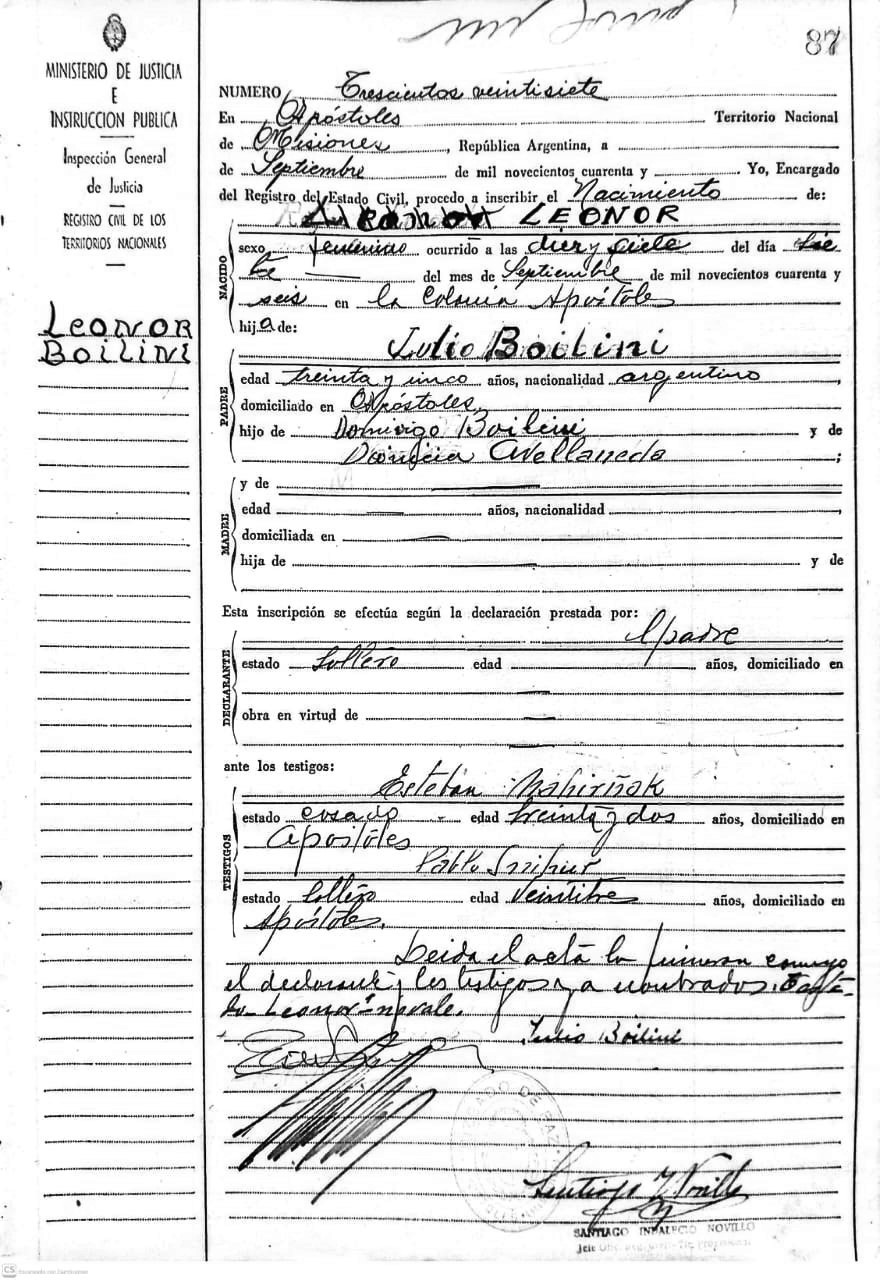 87
MINISTERIO DE JUSTICIA
E
INSTRUCCION PUBLICA
Inspección General
de Justicia
REGISTRO CIVIL DE LOS
TERRITORIOS NACIONALES
LEONOR
BOILINI
NUMERO Trescientos veintisiete
En Apóstoles Territorio Nacional
de Misiones, República Argentina, a
de Septiembre de mil novecientos cuarenta y Yo, Encargado
del Registro del Estado Civil, procedo a inscribir el Nacimiento de:
LEONOR
NACIDO
sexo femenino ocurrido a las diez y siete del día sie
te del mes de Septiembre de mil novecientos cuarenta y
seis en la Colonia Apóstoles
hija de:
Julio Boilini
PADRE
edad treinta y cinco años, nacionalidad argentino,
domiciliado en Apóstoles
hijo de Domingo Boilini y de
Avellaneda;
MADRE
y de
edad años, nacionalidad,
domiciliada en
hija de y de
Esta inscripción se efectúa según la declaración prestada por:
el padre
DECLARANTE
estado soltero edad años, domiciliado en
obra en virtud de
ante los testigos:
TESTIGOS
Esteban
estado casado edad treinta y dos años, domiciliado en
Apóstoles
Pablo
estado soltero edad veintitres años, domiciliado en
Apóstoles.
Leida el acta la firmaron conmigo
el declarante y los testigos ya nombrados. Testa-
do Leonor no vale.
Julio Boilini
SANTIAGO INDALECIO NOVILLO
CS